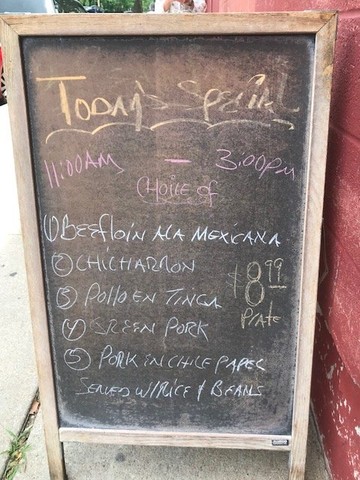 Today's Special
11:00AM – 3:00PM
CHOICE OF
① BEEFLOIN ALA MEXICANA
② CHICHARRON
③ POLLO EN TINGA
④ GREEN PORK
⑤ PORK IN CHILE PAPER
SERVED W/RICE & BEANS
$8.99
PLATE